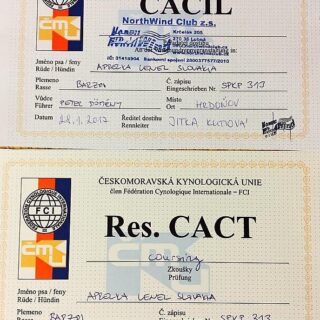 CACIL
NorthWind Club z.s.
Krčelín 205
IČ: 01414904 Bankovní spojení 2800377577/2010
Jméno psa / feny
Rüde / Hündin
LENEL SLOVAKIA
Plemeno
Rasse
BARZOJ
Č. zápisu
Eingeschrieben Nr.
SPKP 313
Vůdce
Führer
PETER
Místo
Ort
HRDOŇOV
Datum
28.1.2017
Ředitel dostihu
Rennleiter
JITKA
FCI
ČMKU
ČESKOMORAVSKÁ KYNOLOGICKÁ UNIE
člen Fédération Cynologique Internationale – FCI
Res. CACT
coursing
Zkoušky
Prüfung
FCI
ČMKU
Jméno psa / feny
Rüde / Hündin
LENEL SLOVAKIA
Plemeno
Rasse
BARZOJ
Č. zápisu
SPKP 313